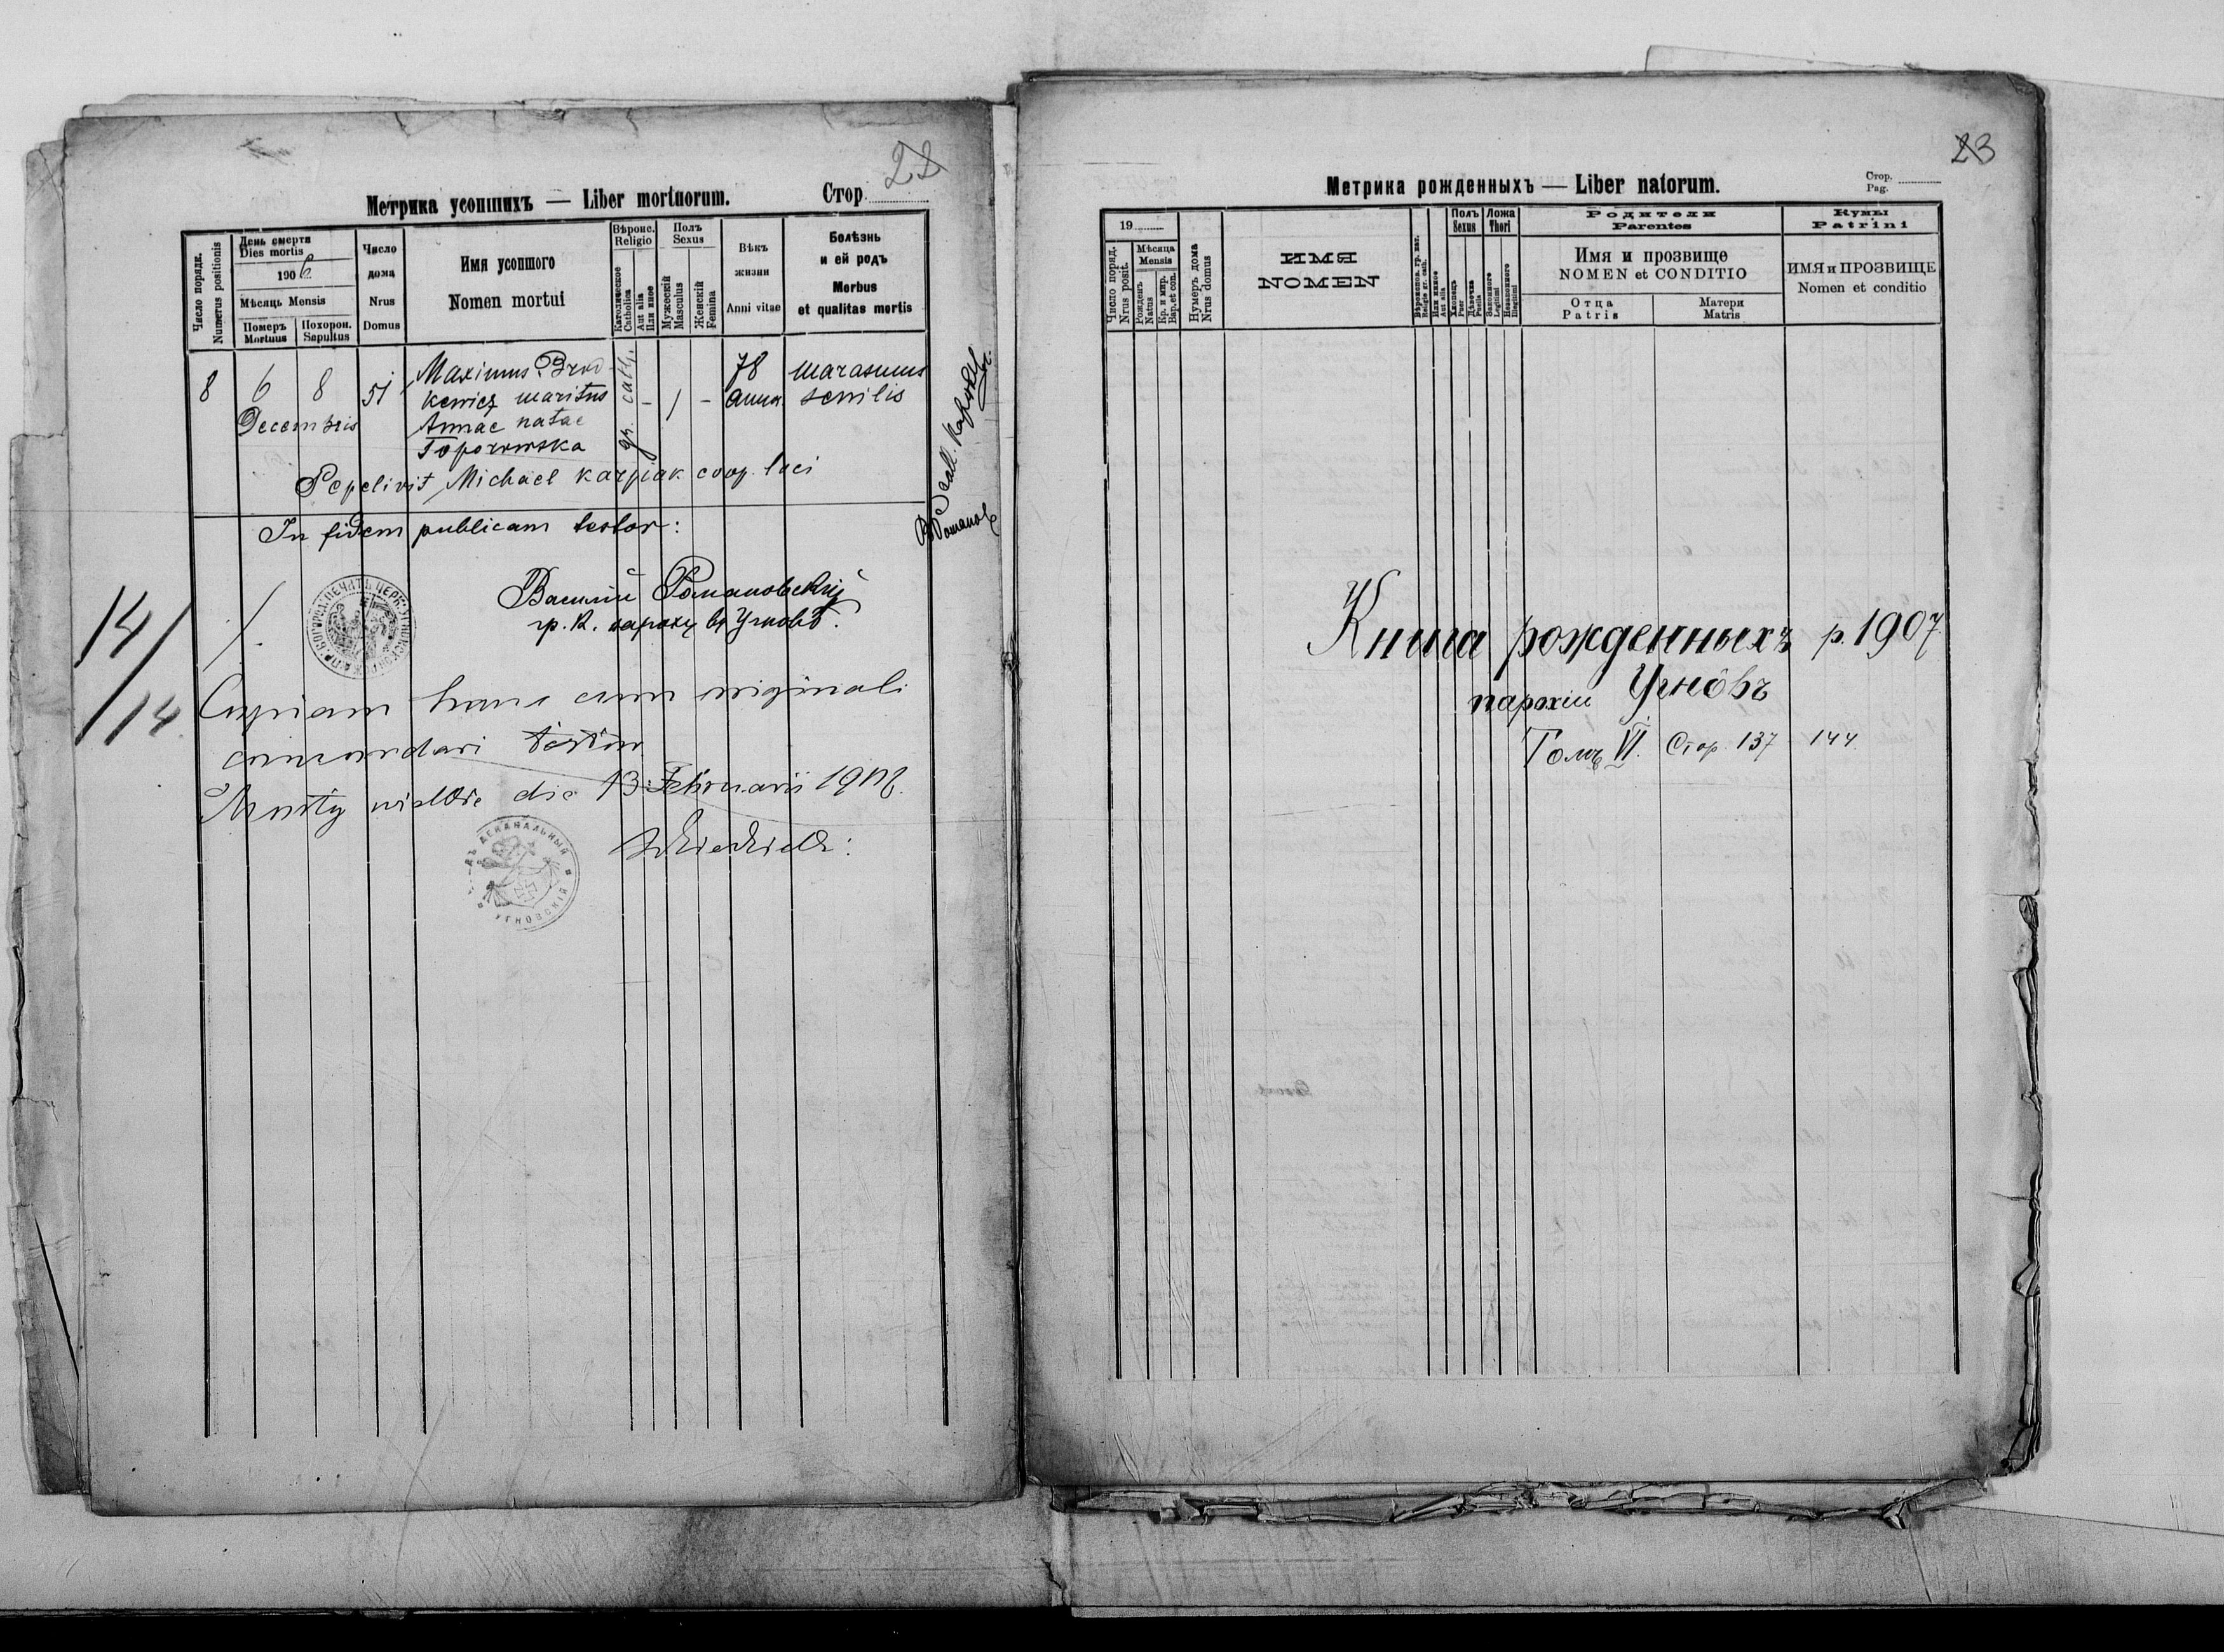 22
Метрика усопшихъ — Liber mortuorum.
Стор.
Число порядк.
Numerus positionis
День смерти
Dies mortis
1906
Мѣсяць Mensis
Померъ
Mortuus
Похорон.
Sepultus
Число
дома
Nrus
Domus
Имя усопшого
Nomen mortui
Вѣроис.
Religio
Католическое
Catholica
Aut alia
Или иное
Полъ
Sexus
Мужескій
Masculus
Женскій
Femina
Вѣкъ
жизни
Anni vitae
Болѣзнь
и ей родъ
Morbus
et qualitas mortis
8
6
8
Decembris
51
Maximus Brod-
kewicz maritus
Annae natae
Toporowska
gr. cath.
-
1
-
78
anna
marasmus
senilis
Sepelivit Michael Karpiak coop. loci
In fidem publicam testor:
Василій Романовскій
гр. к. парохъ въ Угновѣ.
14/
/14
Copiam hanc cum originali
concordari testor
die 13 Februarii
ДЕКАНАЛЬНЫЙ
УГНОВСКІЙ
23
Метрика рожденныхъ — Liber natorum.
Стор.
Pag.
19
Число поряд.
Nrus posit.
Мѣсяца
Mensis
Рожденъ
Natus
Кр. и мvр.
Bap. et con.
Нумеръ дома
Nrus domus
ИМЯ
NOMEN
Вѣроиспов. гр. кат.
Religio gr. cath.
Или иное
Aut alia
Полъ
Sexus
Хлопецъ
Puer
Дѣвочка
Puella
Ложа
Thori
Законного
Legitimi
Незаконного
Illegitimi
Родители
Parentes
Имя и прозвище
NOMEN et CONDITIO
Отца
Patris
Матери
Matris
Кумы
Patrini
ИМЯ и ПРОЗВИЩЕ
Nomen et conditio
Книга рожденныхъ р. 1907
парохіи Угнôвъ
Томъ VI. Стор. 137 - 144.